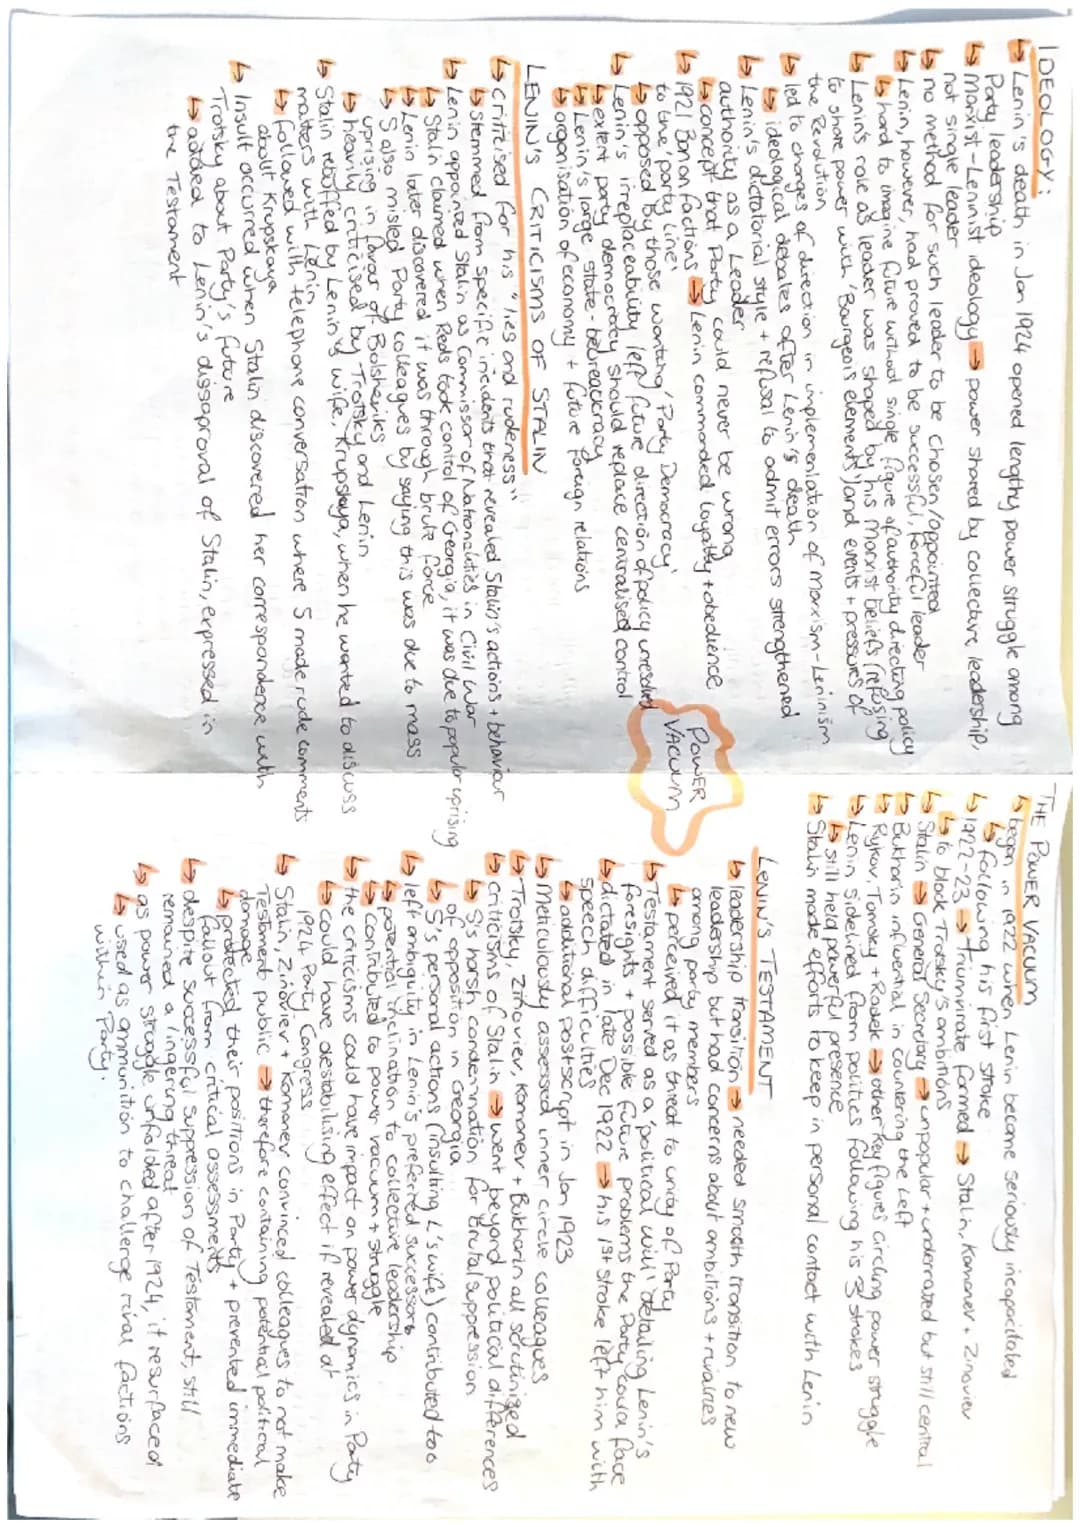 IDEOLOGY:
↳ Lenin's death in Jan 1924 opened lengthy power struggle among
Party leadership
↳ Marxist-Leninist ideology → power shared by collective leadership,
not single leader
↳ no method for such leader to be chosen/appointed
↳ Lenin, however, had proved to be successful, forceful leader
↳ hard to imagine future without single figure of authority directing policy
↳ Lenin's role as leader was shaped by his Marxist beliefs (refusing
to share power with 'Bourgeois elements') and events + pressures of
the Revolution
↳ led to changes of direction in implementation of Marxism-Leninism
↳ ideological debates after Lenin's death
↳ Lenin's dictatorial style + refusal to admit errors strengthened
authority as a Leader
↳ concept that Party could never be wrong
↳ 1921 Ban on factions → Lenin commanded loyalty + obedience
to the 'party line'
↳ opposed by those wanting 'Party Democracy'
↳ Lenin's irreplaceability left future direction of policy unresolved
↳ extent party democracy should replace centralised control
↳ Lenin's large state-beureackracy
↳ organisation of economy + future foreign relations
LENIN'S CRITICISMS OF STALIN
↳ criticised for his "lies and rudeness"
↳ stemmed from specific incidents that revealed Stalin's actions + behaviour
↳ Lenin appointed Stalin as Commissar of Nationalities in Civil War
↳ Stalin claimed when Reds took control of Georgia, it was due to popular uprising
↳ Lenin later discovered it was through brute force
↳ S also misled Party colleagues by saying this was due to mass
uprising in favour of Bolsheviks
↳ heavily criticised by Trotsky and Lenin
↳ Stalin rebuffed by Lenin's wife, Krupskaya, when he wanted to discuss
matters with Lenin
↳ followed with telephone conversation where S made rude comments
about Krupskaya
↳ Insult occurred when Stalin discovered her correspondence with
Trotsky about Party's future
↳ added to Lenin's disapproval of Stalin, expressed in
the Testament
POWER
VACUUM
THE POWER VACUUM
↳ began in 1922 when Lenin became seriously incapacitated
↳ following his first stroke
↳ 1922-23 → Triumvirate formed → Stalin, Kamanev + Zinoviev
↳ to block Trotsky's ambitions
↳ Stalin → General Secretary → unpopular + underrated but still central
↳ Bukharin influential in countering the Left
↳ Rykov, Tomsky + Radek → other key figures circling power struggle
↳ Lenin sidelined from politics following his 3 strokes
↳ still held powerful presence
↳ Stalin made efforts to keep in personal contact with Lenin
LENIN'S TESTAMENT
↳ leadership transition → needed smooth transition to new
leadership but had concerns about ambitions + rivalries
among party members
↳ perceived it as threat to unity of Party
↳ Testament served as a 'political will' detailing Lenin's
foresights + possible future problems the Party could face
↳ dictated in late Dec 1922 → his 1st stroke left him with
speech difficulties
↳ additional postscript in Jan 1923
↳ Meticulously assessed inner circle colleagues
↳ Trotsky, Zinoviev, Kamanev + Bukharin all scrutinised
↳ criticisms of Stalin → went beyond political differences
↳ S's harsh condemnation for brutal suppression
of opposition in Georgia
↳ S's personal actions (insulting L's wife) contributed too
↳ left ambiguity in Lenin's preferred successors
↳ potential inclination to collective leadership
↳ contributed to power vacuum + struggle
↳ the criticisms could have impact on power dynamics in Party
↳ could have destabilising effect if revealed at
1924 Party Congress
↳ Stalin, Zinoviev + Kamanev convinced colleagues to not make
Testament public → therefore containing potential political
damage
↳ protected their positions in Party + prevented immediate
fallout from critical assessments
↳ despite successful suppression of Testament, still
remained a lingering threat
↳ as power struggle unfolded after 1924, it resurfaced
↳ used as ammunition to challenge rival factions
within Party.